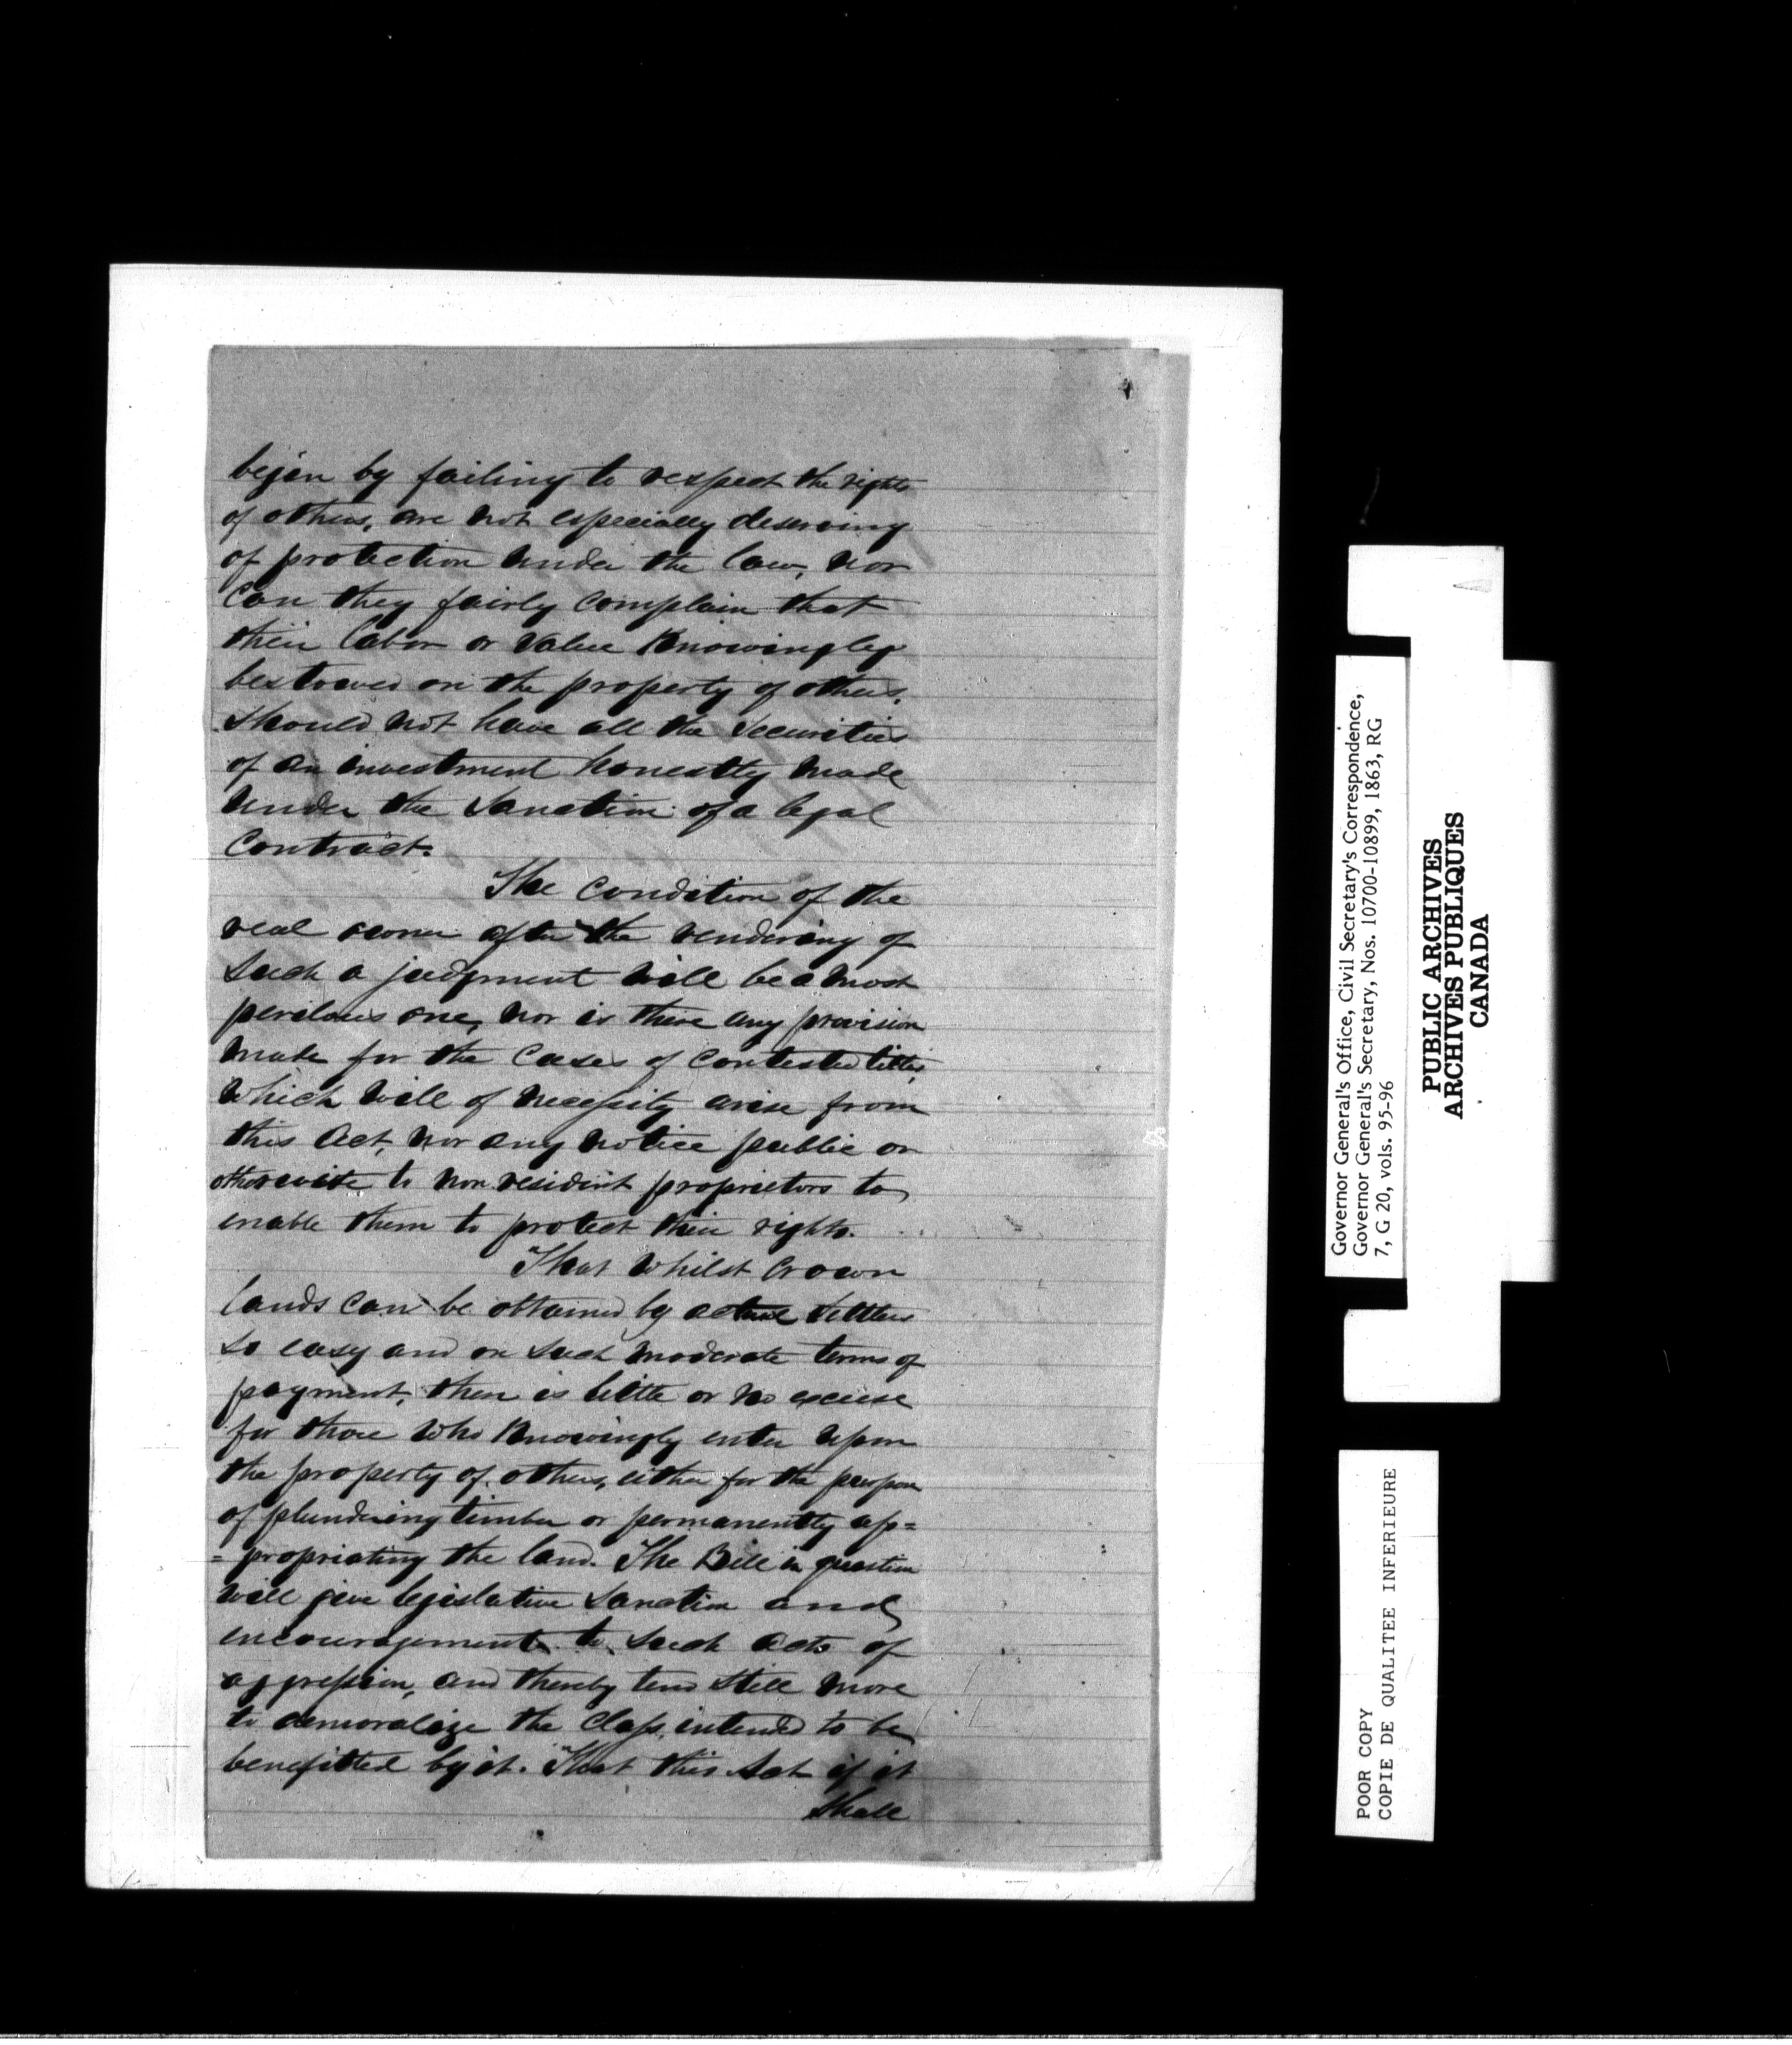 began by failing to respect the rights
of others, are not especially deserving
of protection under the law, nor
can they fairly complain that
their labor or value knowingly
bestowed on the property of others,
should not have all the securities
of an investment honestly made
under the sanction of a legal
contract.
The condition of the
real owner after the rendering of
such a judgment will be a most
perilous one, nor is there any provision
made for the cases of contested titles,
which will of necessity arise from
this Act, nor any notice public or
otherwise to non resident proprietors to
enable them to protect their rights.
That whilst Crown
lands can be obtained by actual settlers
so easy and on such moderate terms of
payment, there is little or no excuse
for those who knowingly enter upon
the property of others, either for the purpose
of plundering timber or permanently ap=
=propriating the land. The Bill in question
will give legislative sanction and
encouragement to such acts of
aggression, and thereby tend still more
to demoralize the class, intended to be
benefitted by it. That this Act if it
shall
Governor General's Office, Civil Secretary's Correspondence,
Governor General's Secretary, Nos. 10700-10899, 1863, RG
7, G 20, vols. 95-96
PUBLIC ARCHIVES
ARCHIVES PUBLIQUES
CANADA
POOR COPY
COPIE DE QUALITEE INFERIEURE